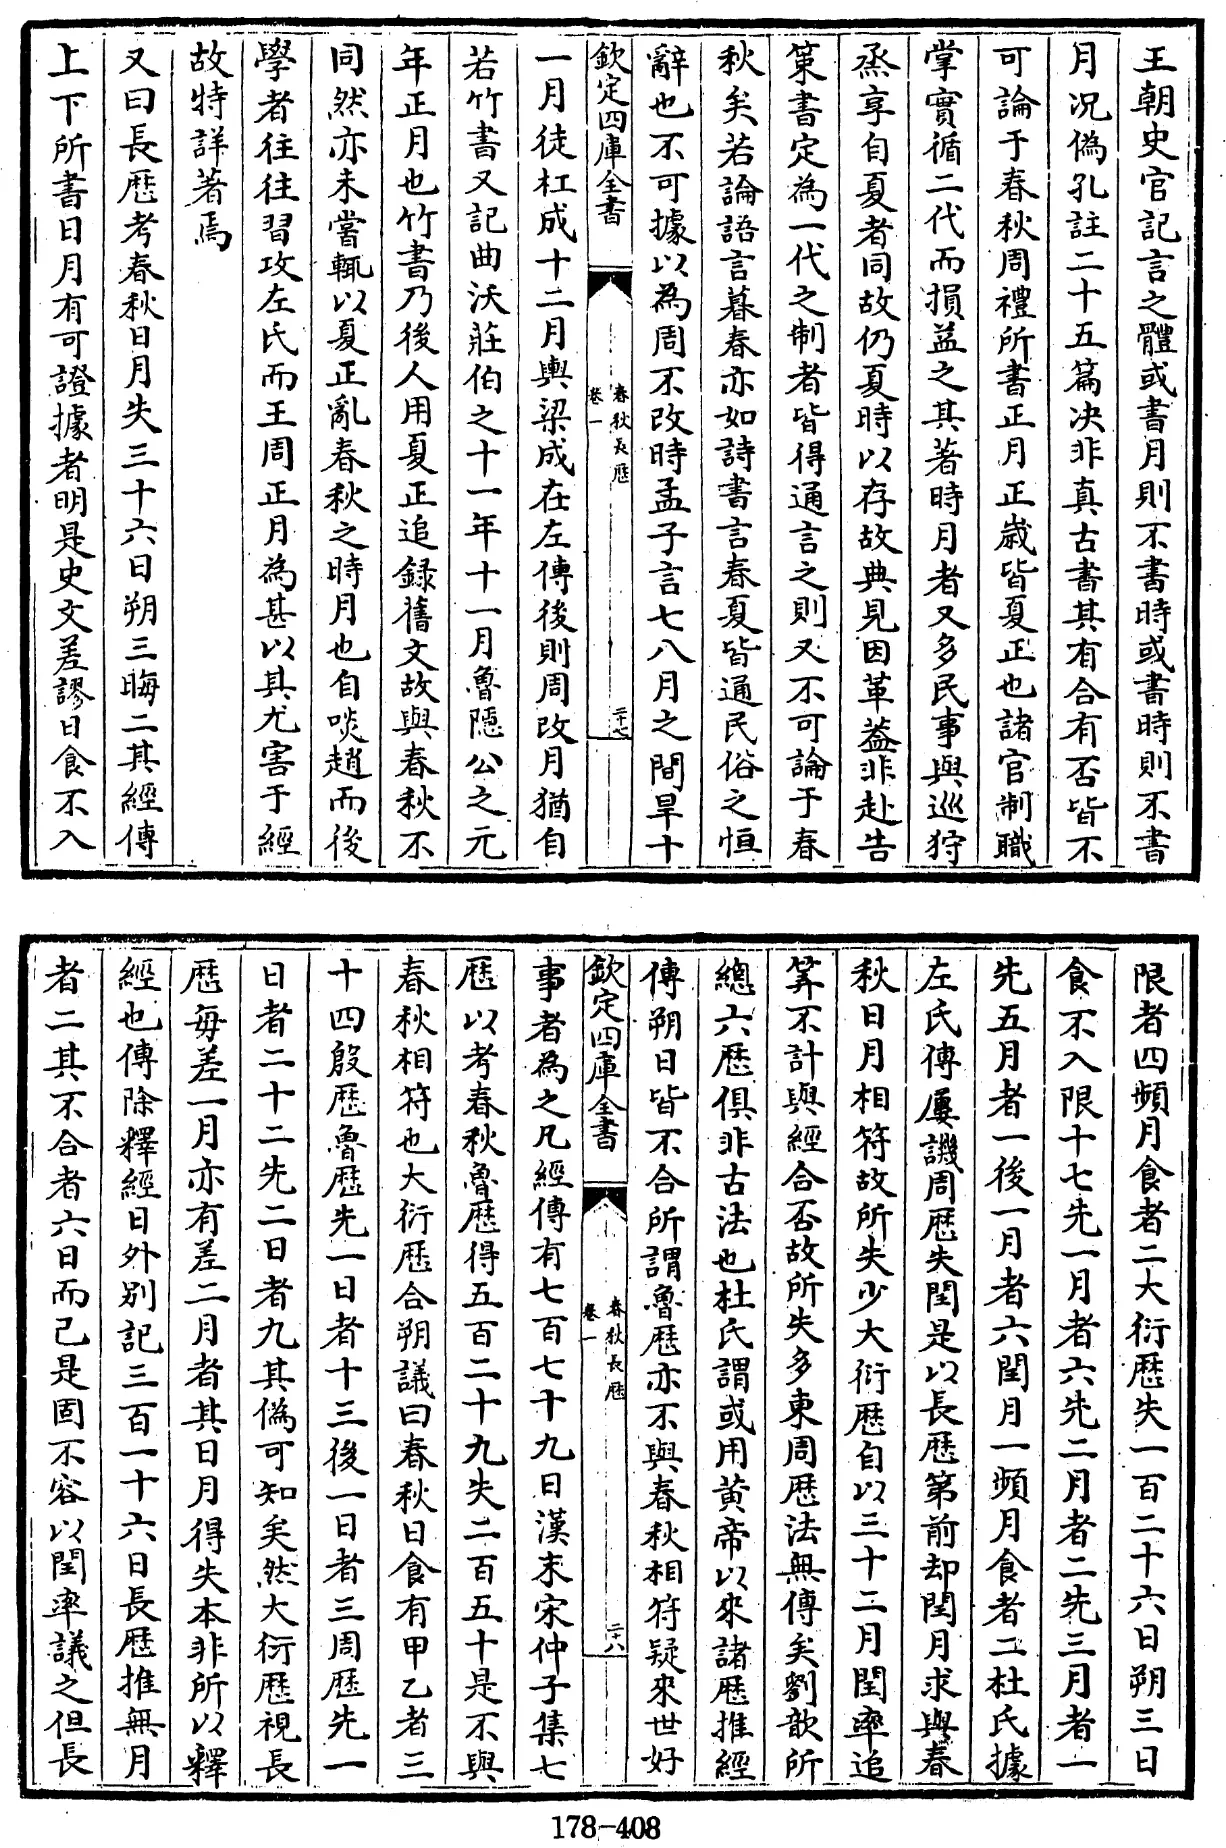 王朝史官記言之體或書月則不書時或書時則不書
月况偽孔註二十五篇决非真古書其有合有否皆不
可論于春秋周禮所書正月正歳皆夏正也諸官制職
掌實循二代而損益之其著時月者又多民事與巡狩
烝享自夏者同故仍夏時以存故典見因革葢非赴告
策書定為一代之制者皆得通言之則又不可論于春
秋矣若論語言暮春亦如詩書言春夏皆通民俗之恒
辭也不可據以為周不改時孟子言七八月之間旱十
欽定四庫全書
春秋長歴
卷一
二十七
一月徒杠成十二月輿梁成在左傳後則周改月猶自
若竹書又記曲沃莊伯之十一年十一月魯隱公之元
年正月也竹書乃後人用夏正追録舊文故與春秋不
同然亦未嘗輒以夏正亂春秋之時月也自啖趙而後
學者往往習攻左氏而王周正月為甚以其尤害于經
故特詳著焉
又曰長歴考春秋日月失三十六日朔三晦二其經傳
上下所書日月有可證據者明是史文差謬日食不入
限者四頻月食者二大衍歴失一百二十六日朔三日
食不入限十七先一月者六先二月者二先三月者一
先五月者一後一月者六閏月一頻月食者二杜氏據
左氏傳屢譏周歴失閏是以長歴第前却閏月求與春
秋日月相符故所失少大衍歴自以三十二月閏率追
筭不計與經合否故所失多東周歴法無傳矣劉歆所
總六歴俱非古法也杜氏謂或用黄帝以來諸歴推經
傳朔日皆不合所謂魯歴亦不與春秋相符疑來世好
欽定四庫全書
春秋長歴
卷一
二十八
事者為之凡經傳有七百七十九日漢末宋仲子集七
歴以考春秋魯歴得五百二十九失二百五十是不與
春秋相符也大衍歴合朔議曰春秋日食有甲乙者三
十四殷歴魯歴先一日者十三後一日者三周歴先一
日者二十二先二日者九其偽可知矣然大衍歴視長
歴毎差一月亦有差二月者其日月得失本非所以釋
經也傳除釋經日外別記三百一十六日長歴推無月
者二其不合者六日而已是固不容以閏率議之但長
178-408